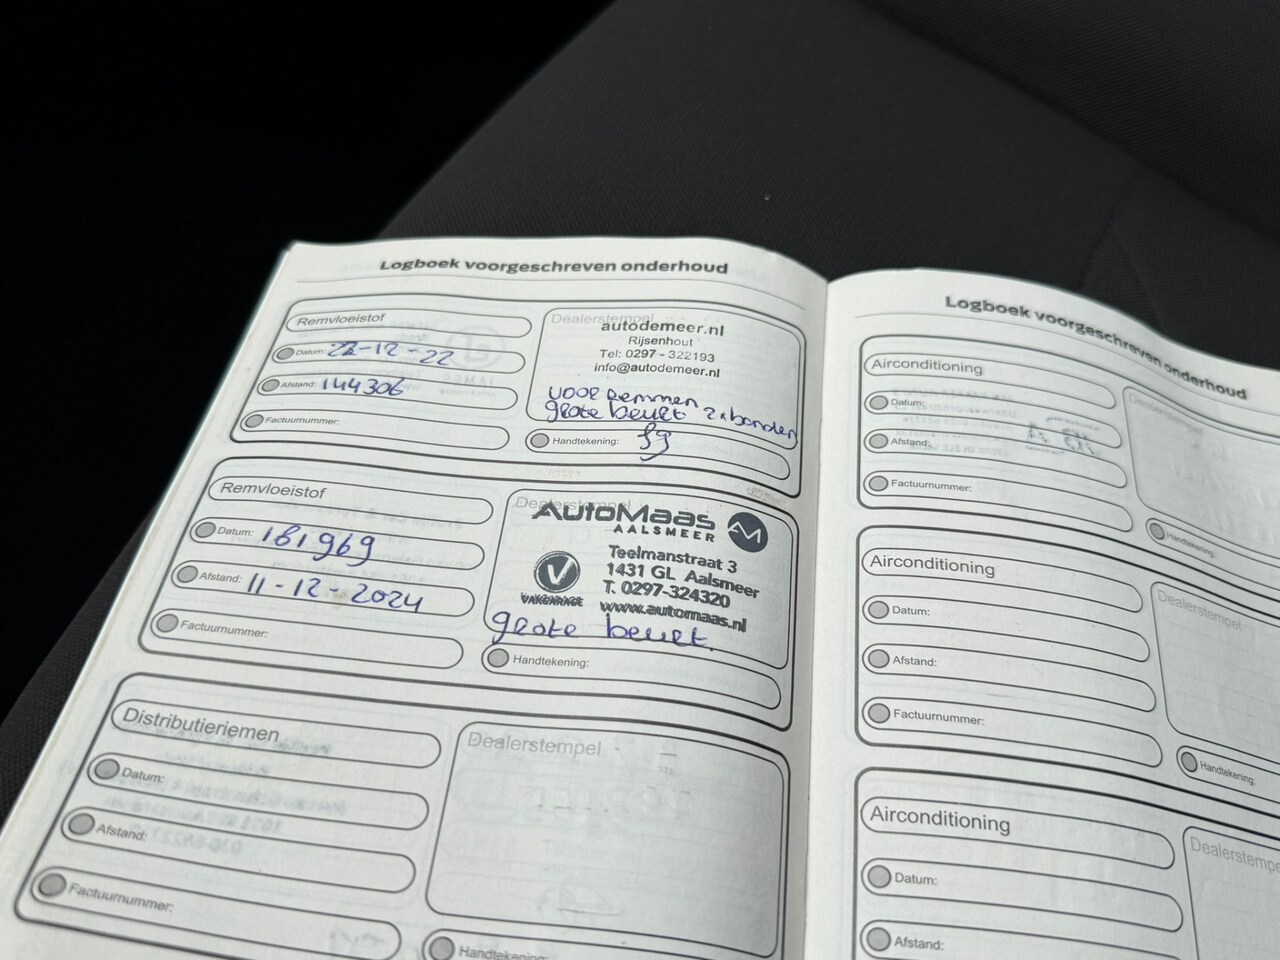 Logboek voorgeschreven onderhoud
Remvloeistof
Datum: 22-12-22
Afstand: 144306
Factuurnummer:
Dealerstempel
autodemeer.nl
Rijsenhout
Tel: 0297 - 322193
info@autodemeer.nl
voor remmen
grote beurt 2x banden
Handtekening:
Remvloeistof
Datum: 181969
Afstand: 11-12-2024
Factuurnummer:
Dealerstempel
AutoMaas
AALSMEER
Teelmanstraat 3
1431 GL Aalsmeer
T. 0297-324320
www.automaas.nl
VAKGARAGE
grote beurt.
Handtekening:
Distributieriemen
Datum:
Afstand:
Factuurnummer:
Dealerstempel
Handtekening:
Logboek voorgeschreven onderhoud
Airconditioning
Datum:
Afstand:
Factuurnummer:
Dealerstempel
Handtekening:
Airconditioning
Datum:
Afstand:
Factuurnummer:
Dealerstempel
Handtekening:
Airconditioning
Datum:
Afstand:
Dealerstempe